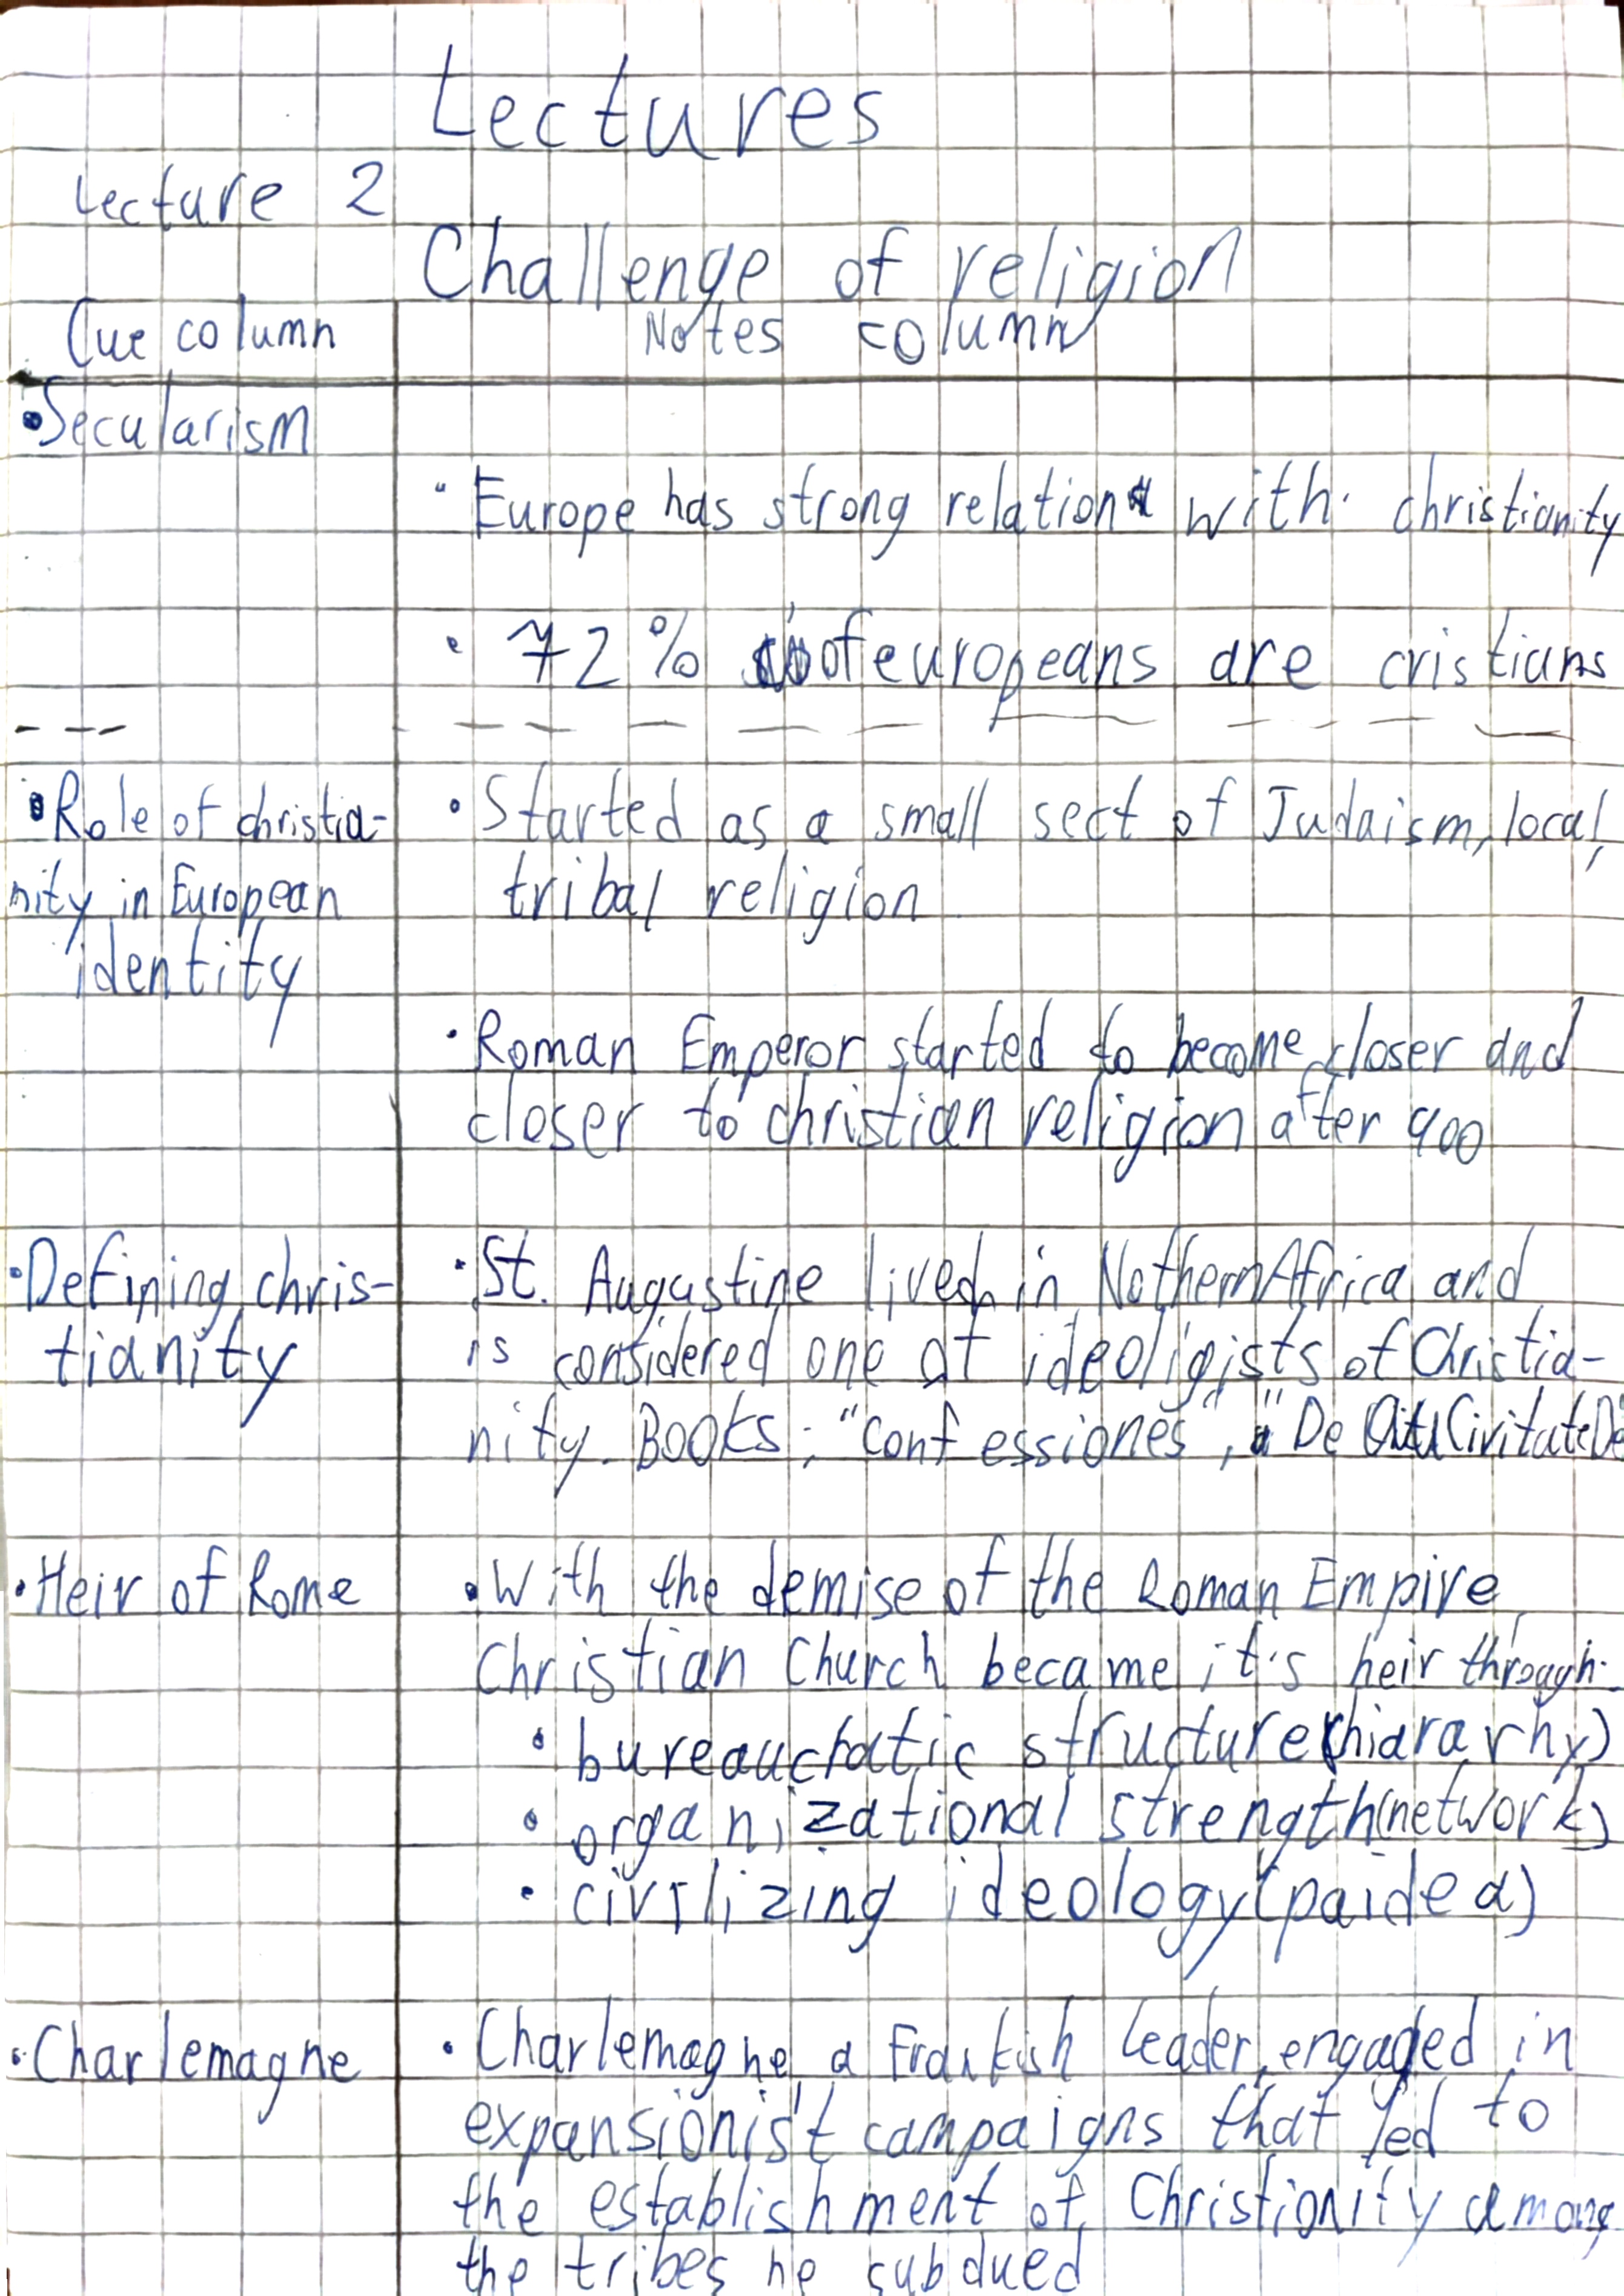 Lectures
Lecture 2
Challenge of religion
Cue column Notes column
•Secularism
• Europe has strong relation with christianity
• 72% of europeans are cristians
•Role of christia- • Started as a small sect of Judaism, local,
nity in European tribal religion
identity
• Roman Emperor started to become closer and
closer to christian religion after 900
•Defining chris- •St. Augustine lived in Nothern Africa and
tianity is considered one of ideoligists of Christia-
nity. Books: "Confessiones", "De Civitate De
•Heir of Rome •With the demise of the Roman Empire
Christian Church became it's heir through:
• bureaucratic structure (hiararhy)
• organizational strength (network)
• civilizing ideology (paidea)
•Charlemagne • Charlemagne, a Frankish leader, engaged in
expansionist campaigns that led to
the establishment of Christianity among
the tribes he subdued